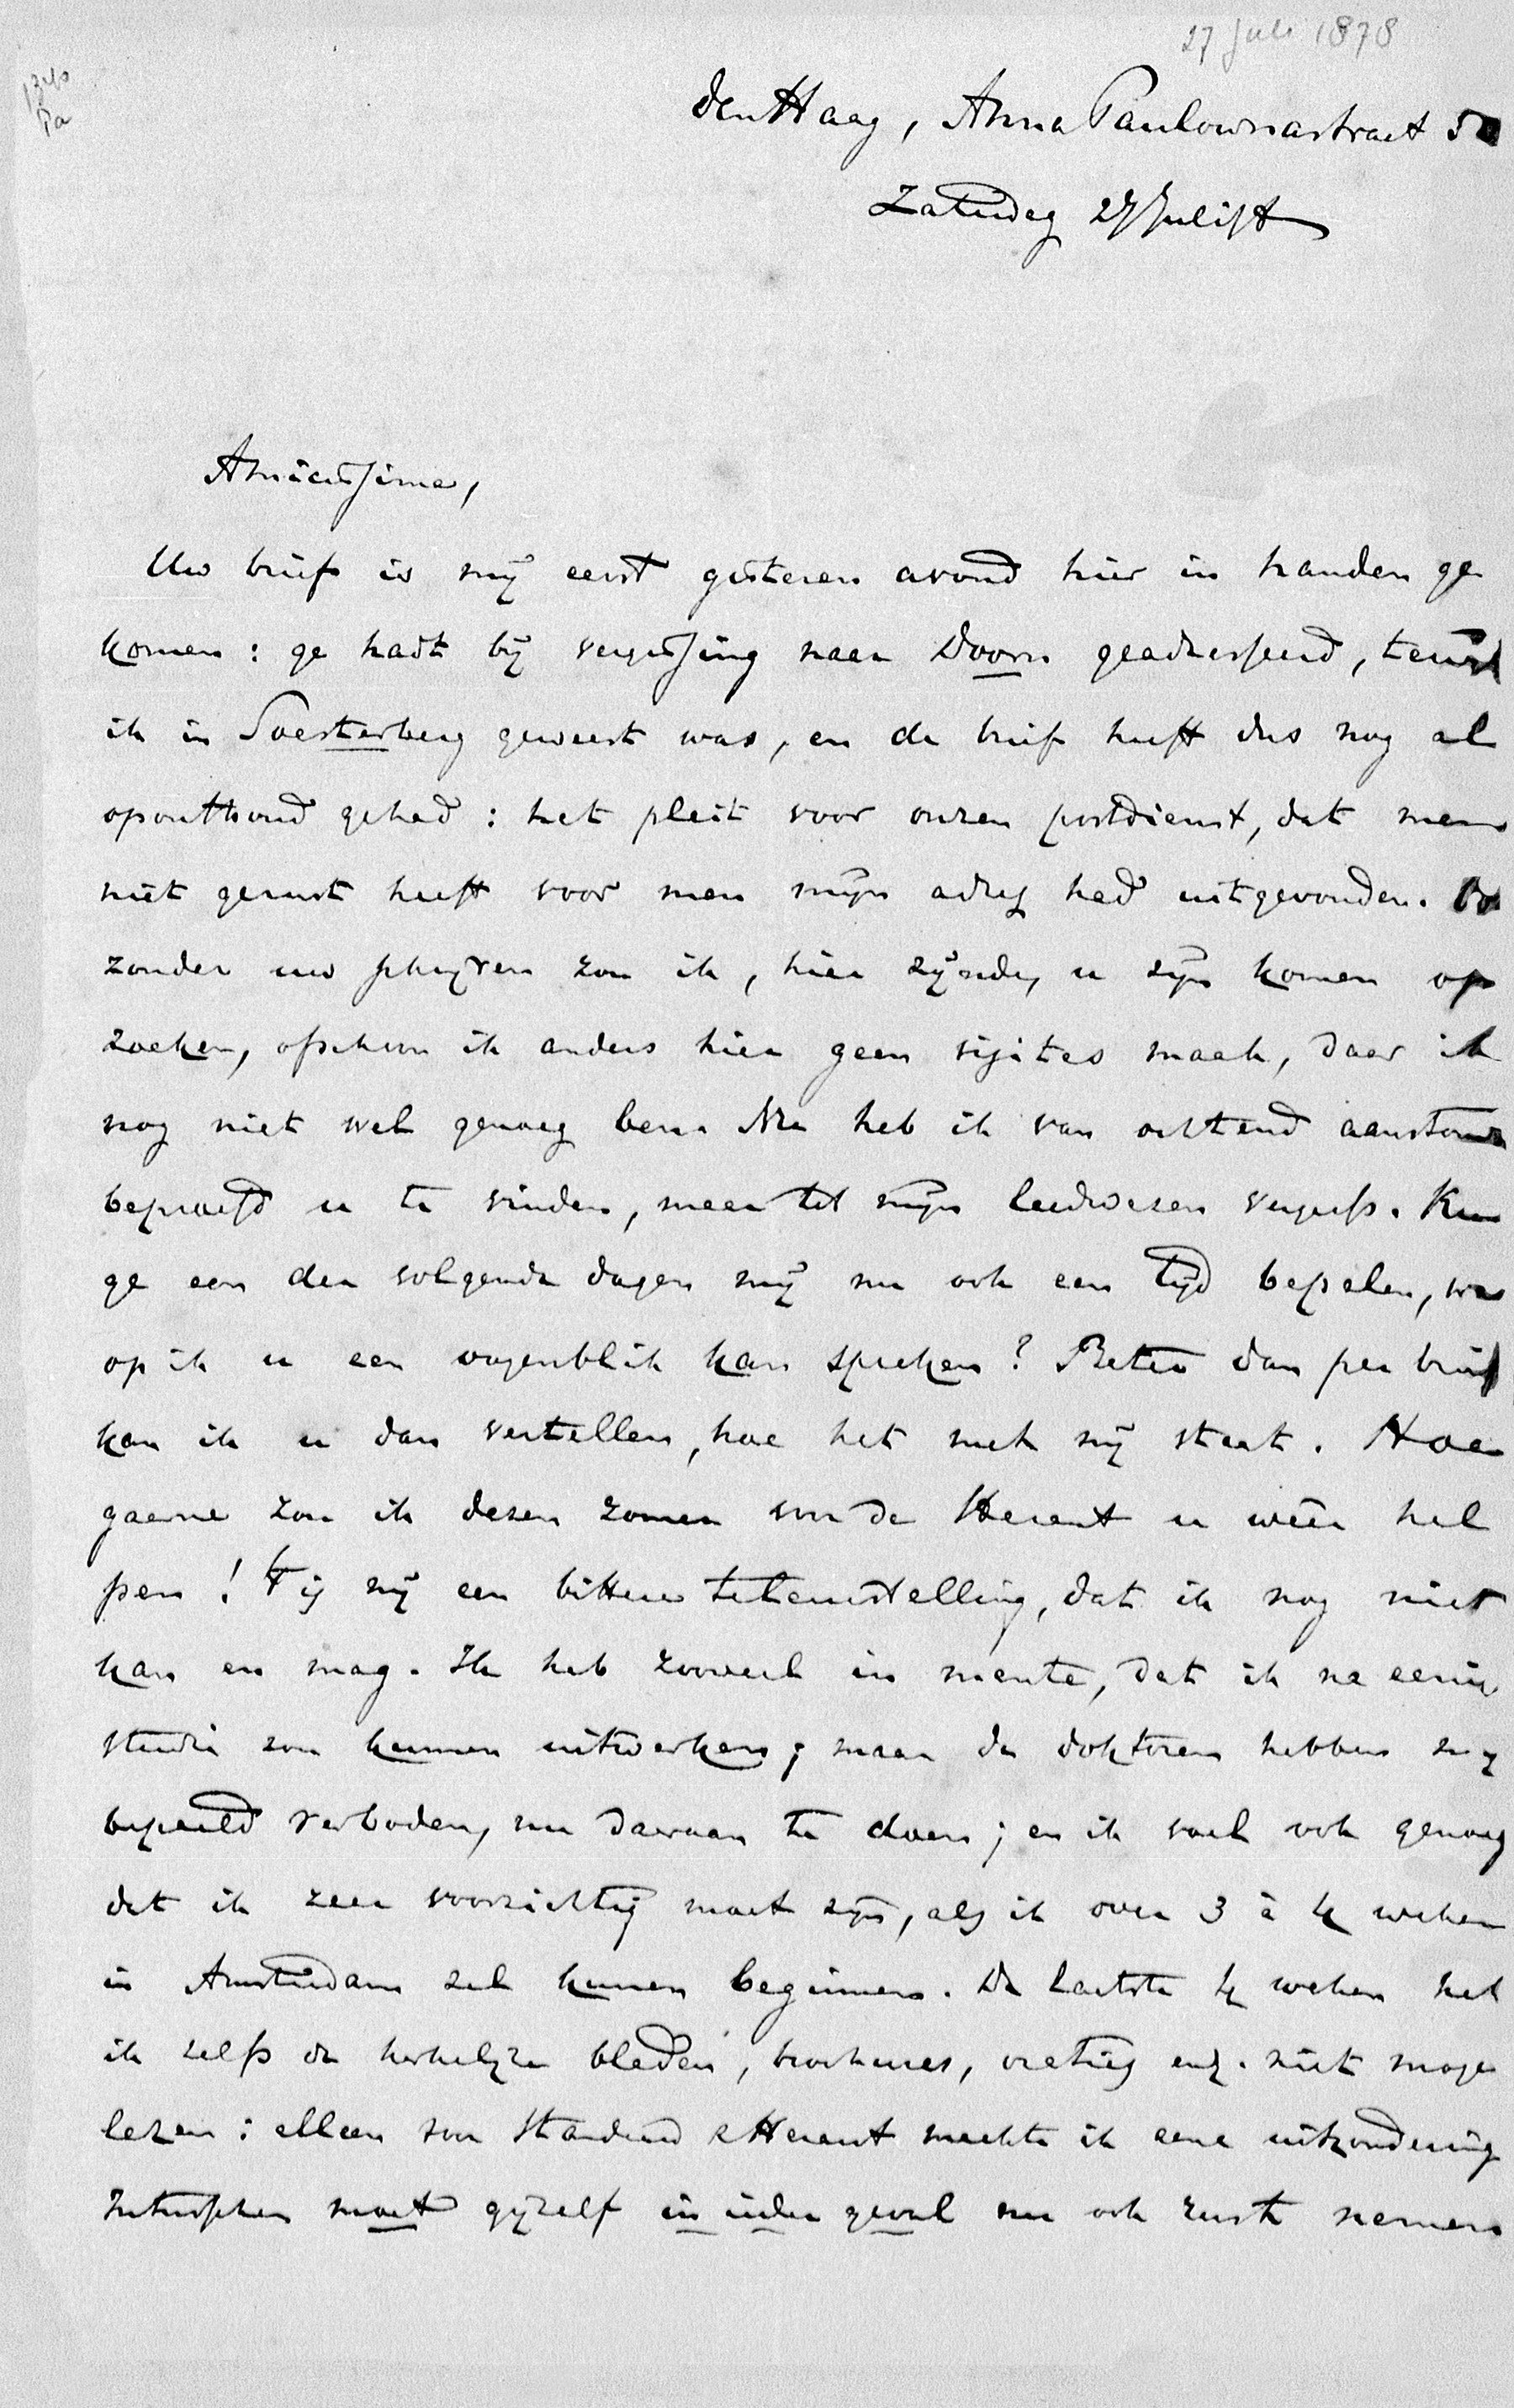 27 Juli 1878
den Haag, Anna Paulownastraat 5
Zaturdag 27 Juli 78
Amicissime,
Uw brief is mij eerst gisteren avond hier in handen ge
komen: ge hadt bij vergissing naar Doorn geadresseerd, terwijl
ik in Soesterberg geweest was, en de brief heeft dus nog al
oponthoud gehad: het pleit voor onzen postdienst, dat men
niet gerust heeft voor men mijn adres had uitgevonden. Ook
zonder uw schrijven zou ik, hier zijnde, u zijn komen op
zoeken, ofschoon ik anders hier geen visites maak, daar ik
nog niet wel genoeg ben. Nu heb ik van ochtend aanstonds
beproefd u te vinden, maar tot mijn leedwezen vergeefs. Kun
ge een der volgende dagen mij nu ook een tijd bepalen, waar
op ik u een oogenblik kan spreken? Beter dan per brief
kan ik u dan vertellen, hoe het met mij staat. Hoe
gaarne zou ik dezen zomer voor de Heraut u weêr hel
pen! 't is mij een bittere teleurstelling, dat ik nog niet
kan en mag. Ik heb zooveel in mente, dat ik na eenige
studie zou kunnen uitwerken; maar de dokteren hebben mij
bepaald verboden, nu daaraan te doen; en ik voel ook genoeg
dat ik zeer voorzichtig moet zijn, als ik over 3 à 4 weken
in Amsterdam zal kunnen beginnen. De laatste 4 weken heb
ik zelfs de kerkelijke bladen, brochures, oratiës enz. niet mogen
lezen: alleen voor Standaard & Heraut maakte ik eene uitzondering
Intusschen moet gijzelf in ieder geval nu ook rust nemen